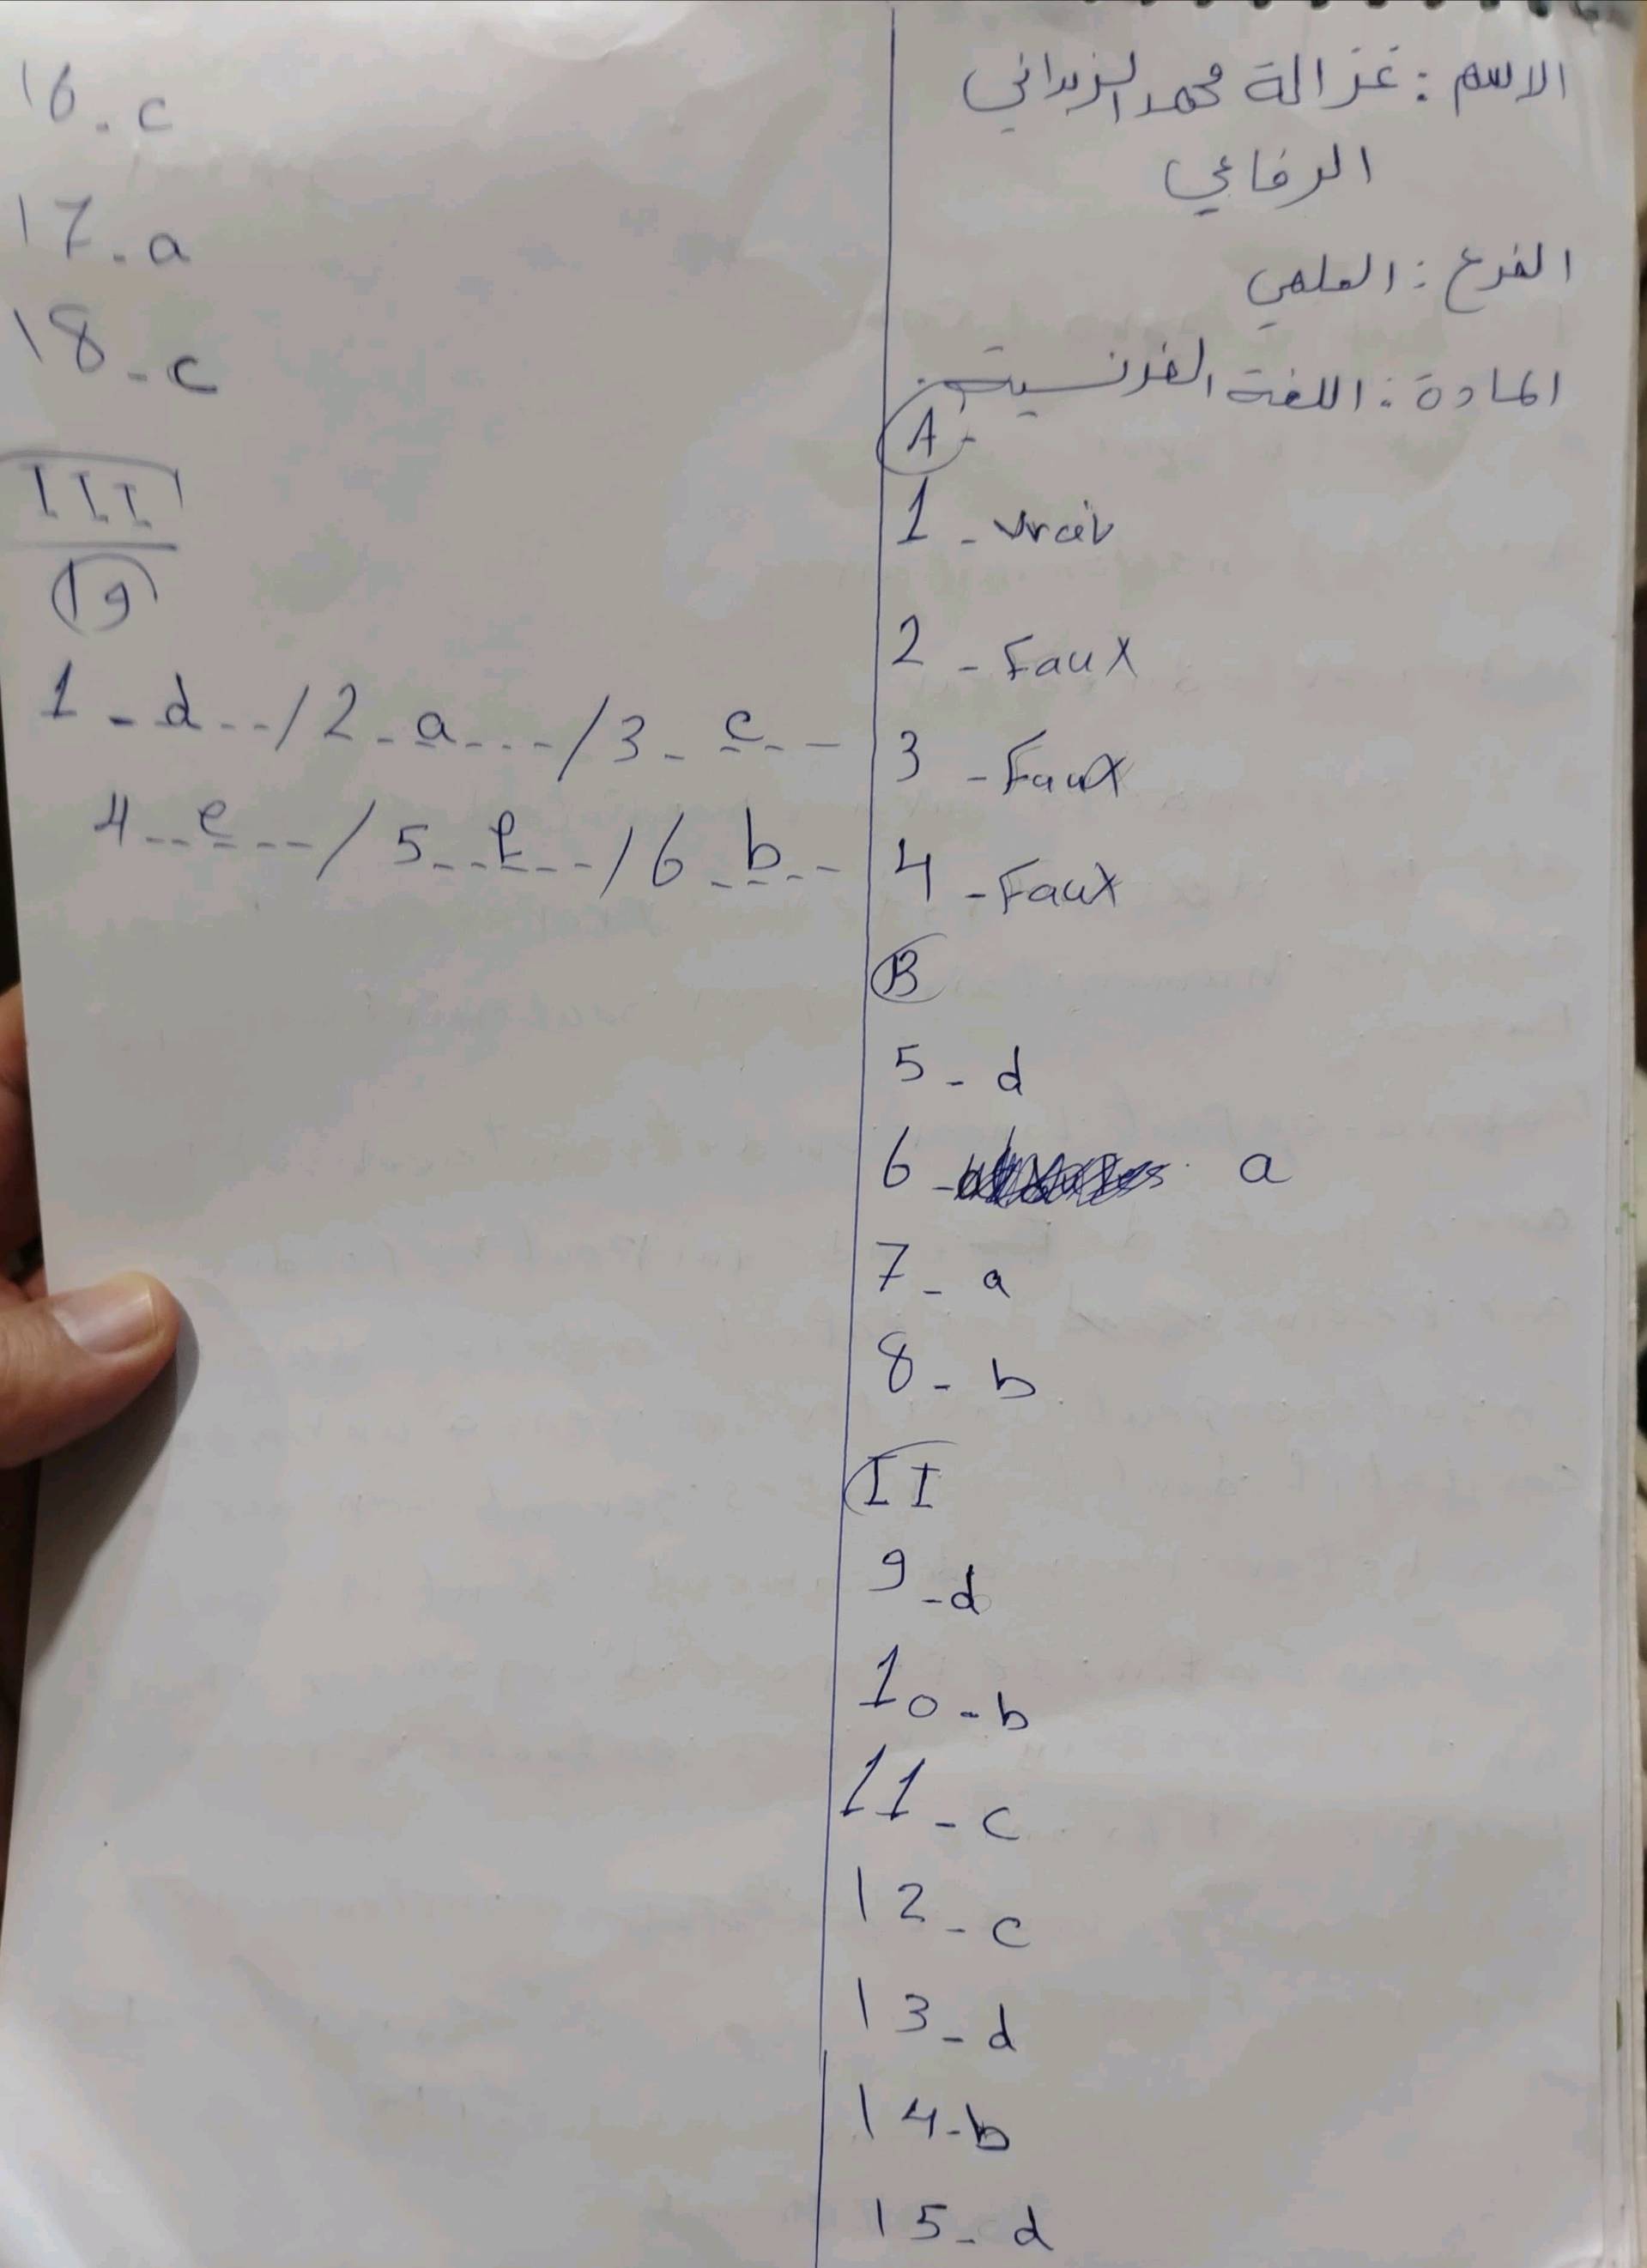 الاسم : غزالة محمد الزبداني
الرفاعي
الفرع : العلمي
المادة : اللغة الفرنسية
A -
1 - vrai
2 - Faux
3 - Faux
4 - Faux
B
5 - d
6 - a
7 - a
8 - b
II
9 - d
10 - b
11 - c
12 - c
13 - d
14 - b
15 - d
16 - c
17 - a
18 - c
III
19
1 - d / 2 - a / 3 - c
4 - e / 5 - f / 6 - b